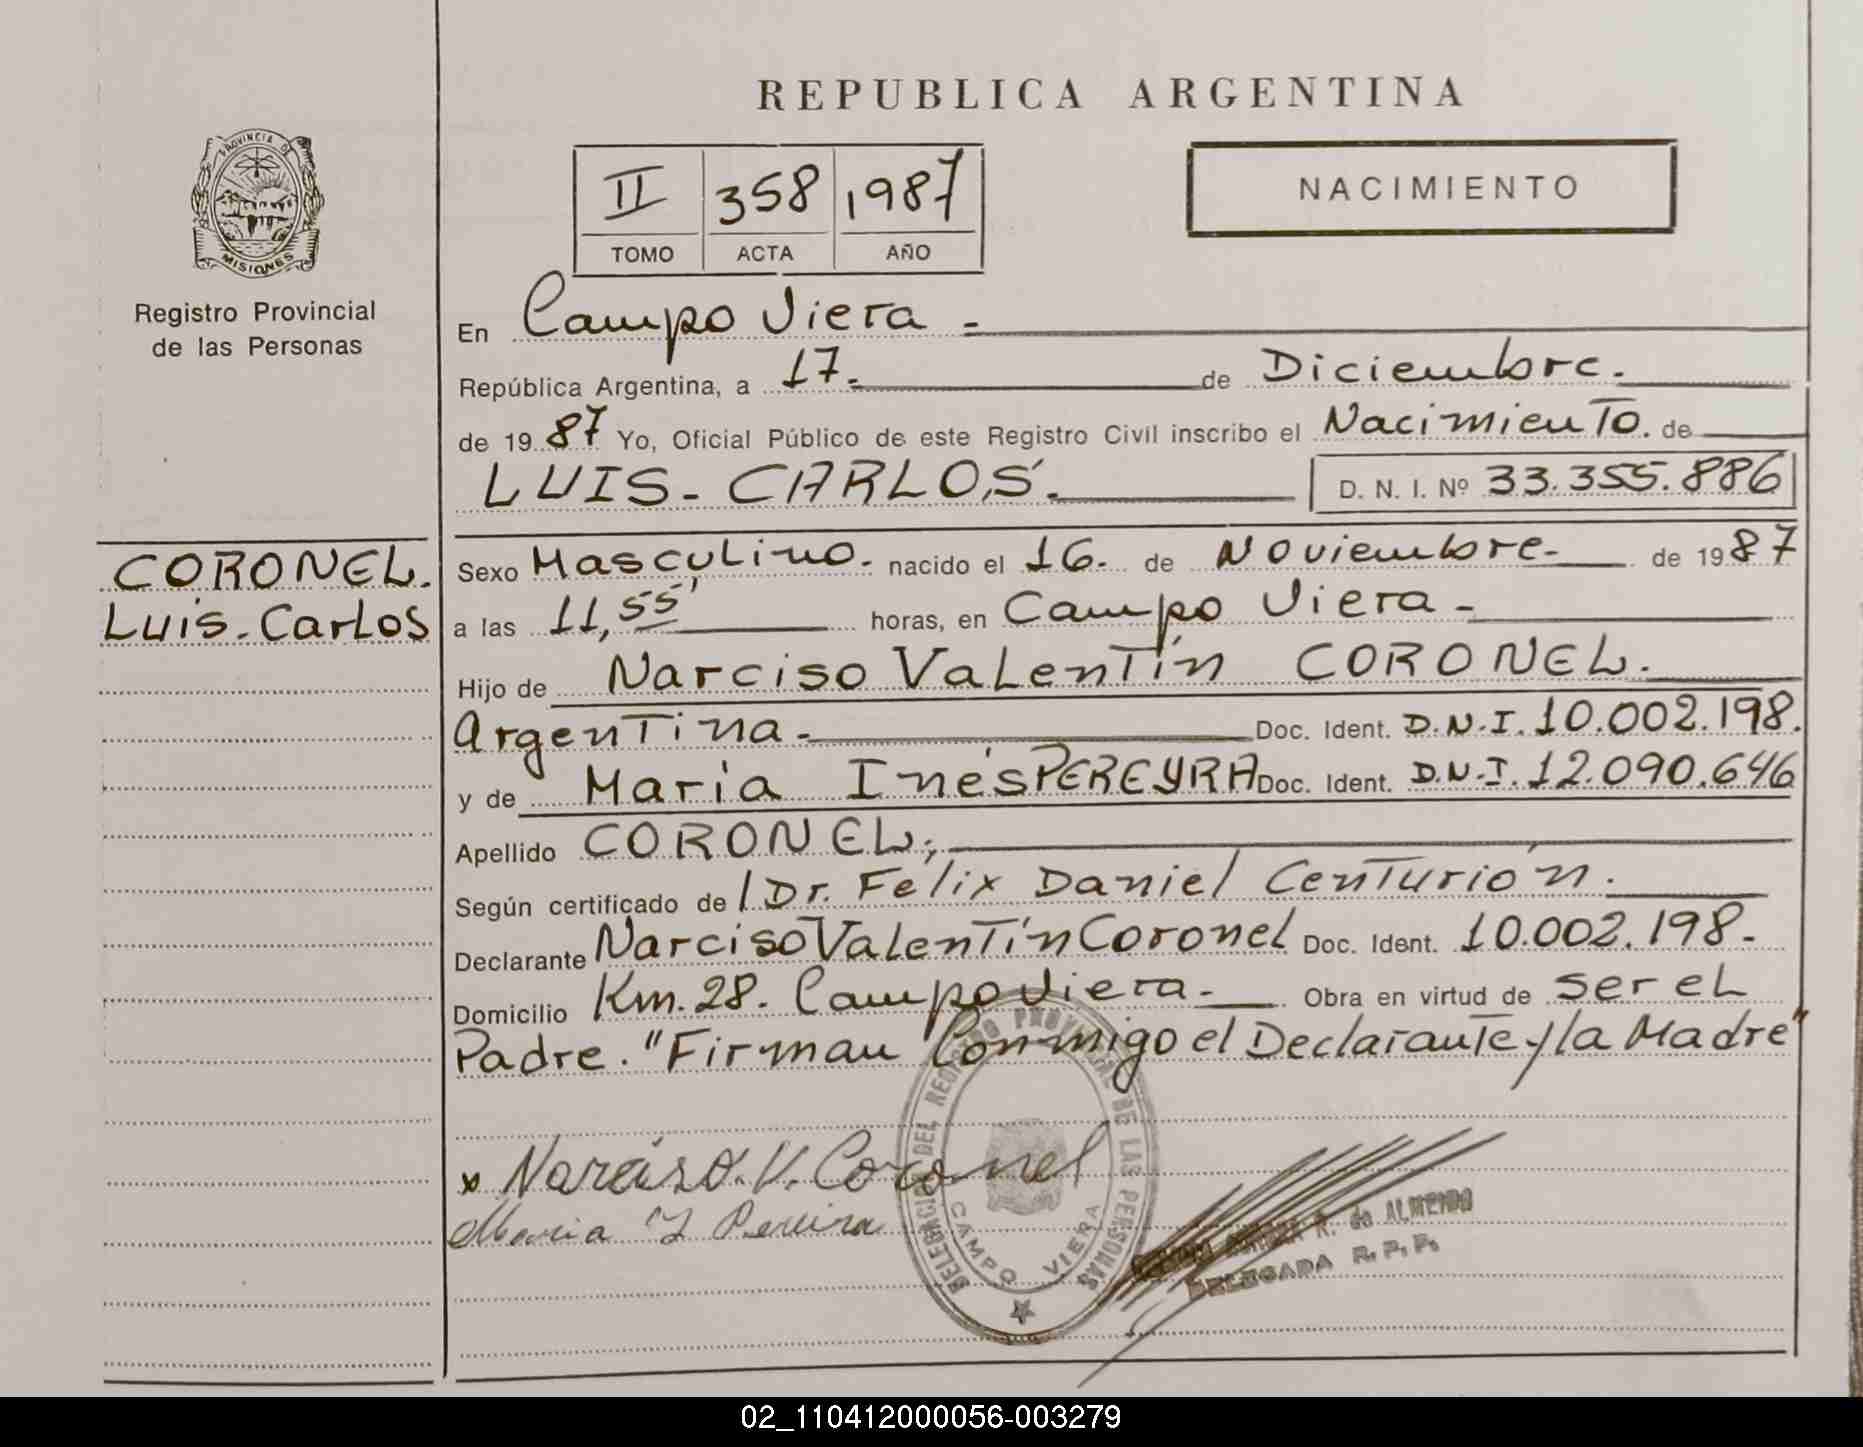 REPUBLICA ARGENTINA
PROVINCIA DE
MISIONES
Registro Provincial
de las Personas
II 358 1987
TOMO ACTA AÑO
NACIMIENTO
En Campo Viera.=
República Argentina, a 17.= de Diciembre.
de 19 87 Yo, Oficial Público de este Registro Civil inscribo el Nacimiento. de
LUIS-CARLOS.- D. N. I. Nº 33.355.886
CORONEL.
Luis-Carlos
Sexo Masculino. nacido el 16. de Noviembre- de 19 87
a las 11,55' horas, en Campo Viera-
Hijo de Narciso Valentín CORONEL.
Argentina- Doc. Ident. D.N.I. 10.002.198.
y de María Inés PEREYRA Doc. Ident. D.N.I. 12.090.646
Apellido CORONEL;
Según certificado de l Dr. Félix Daniel Centurión.
Declarante Narciso Valentín Coronel Doc. Ident. 10.002.198.-
Domicilio Km. 28. Campo Viera.- Obra en virtud de ser el
Padre. "Firman Conmigo el Declarante y la Madre"
x Narciso. V. Coronel
Maria I Pereira
DELEGACION DEL REGISTRO PROVINCIAL DE LAS PERSONAS
CAMPO VIERA
R. de ALMEIDA
DELEGADA R. P. P.
02_110412000056-003279